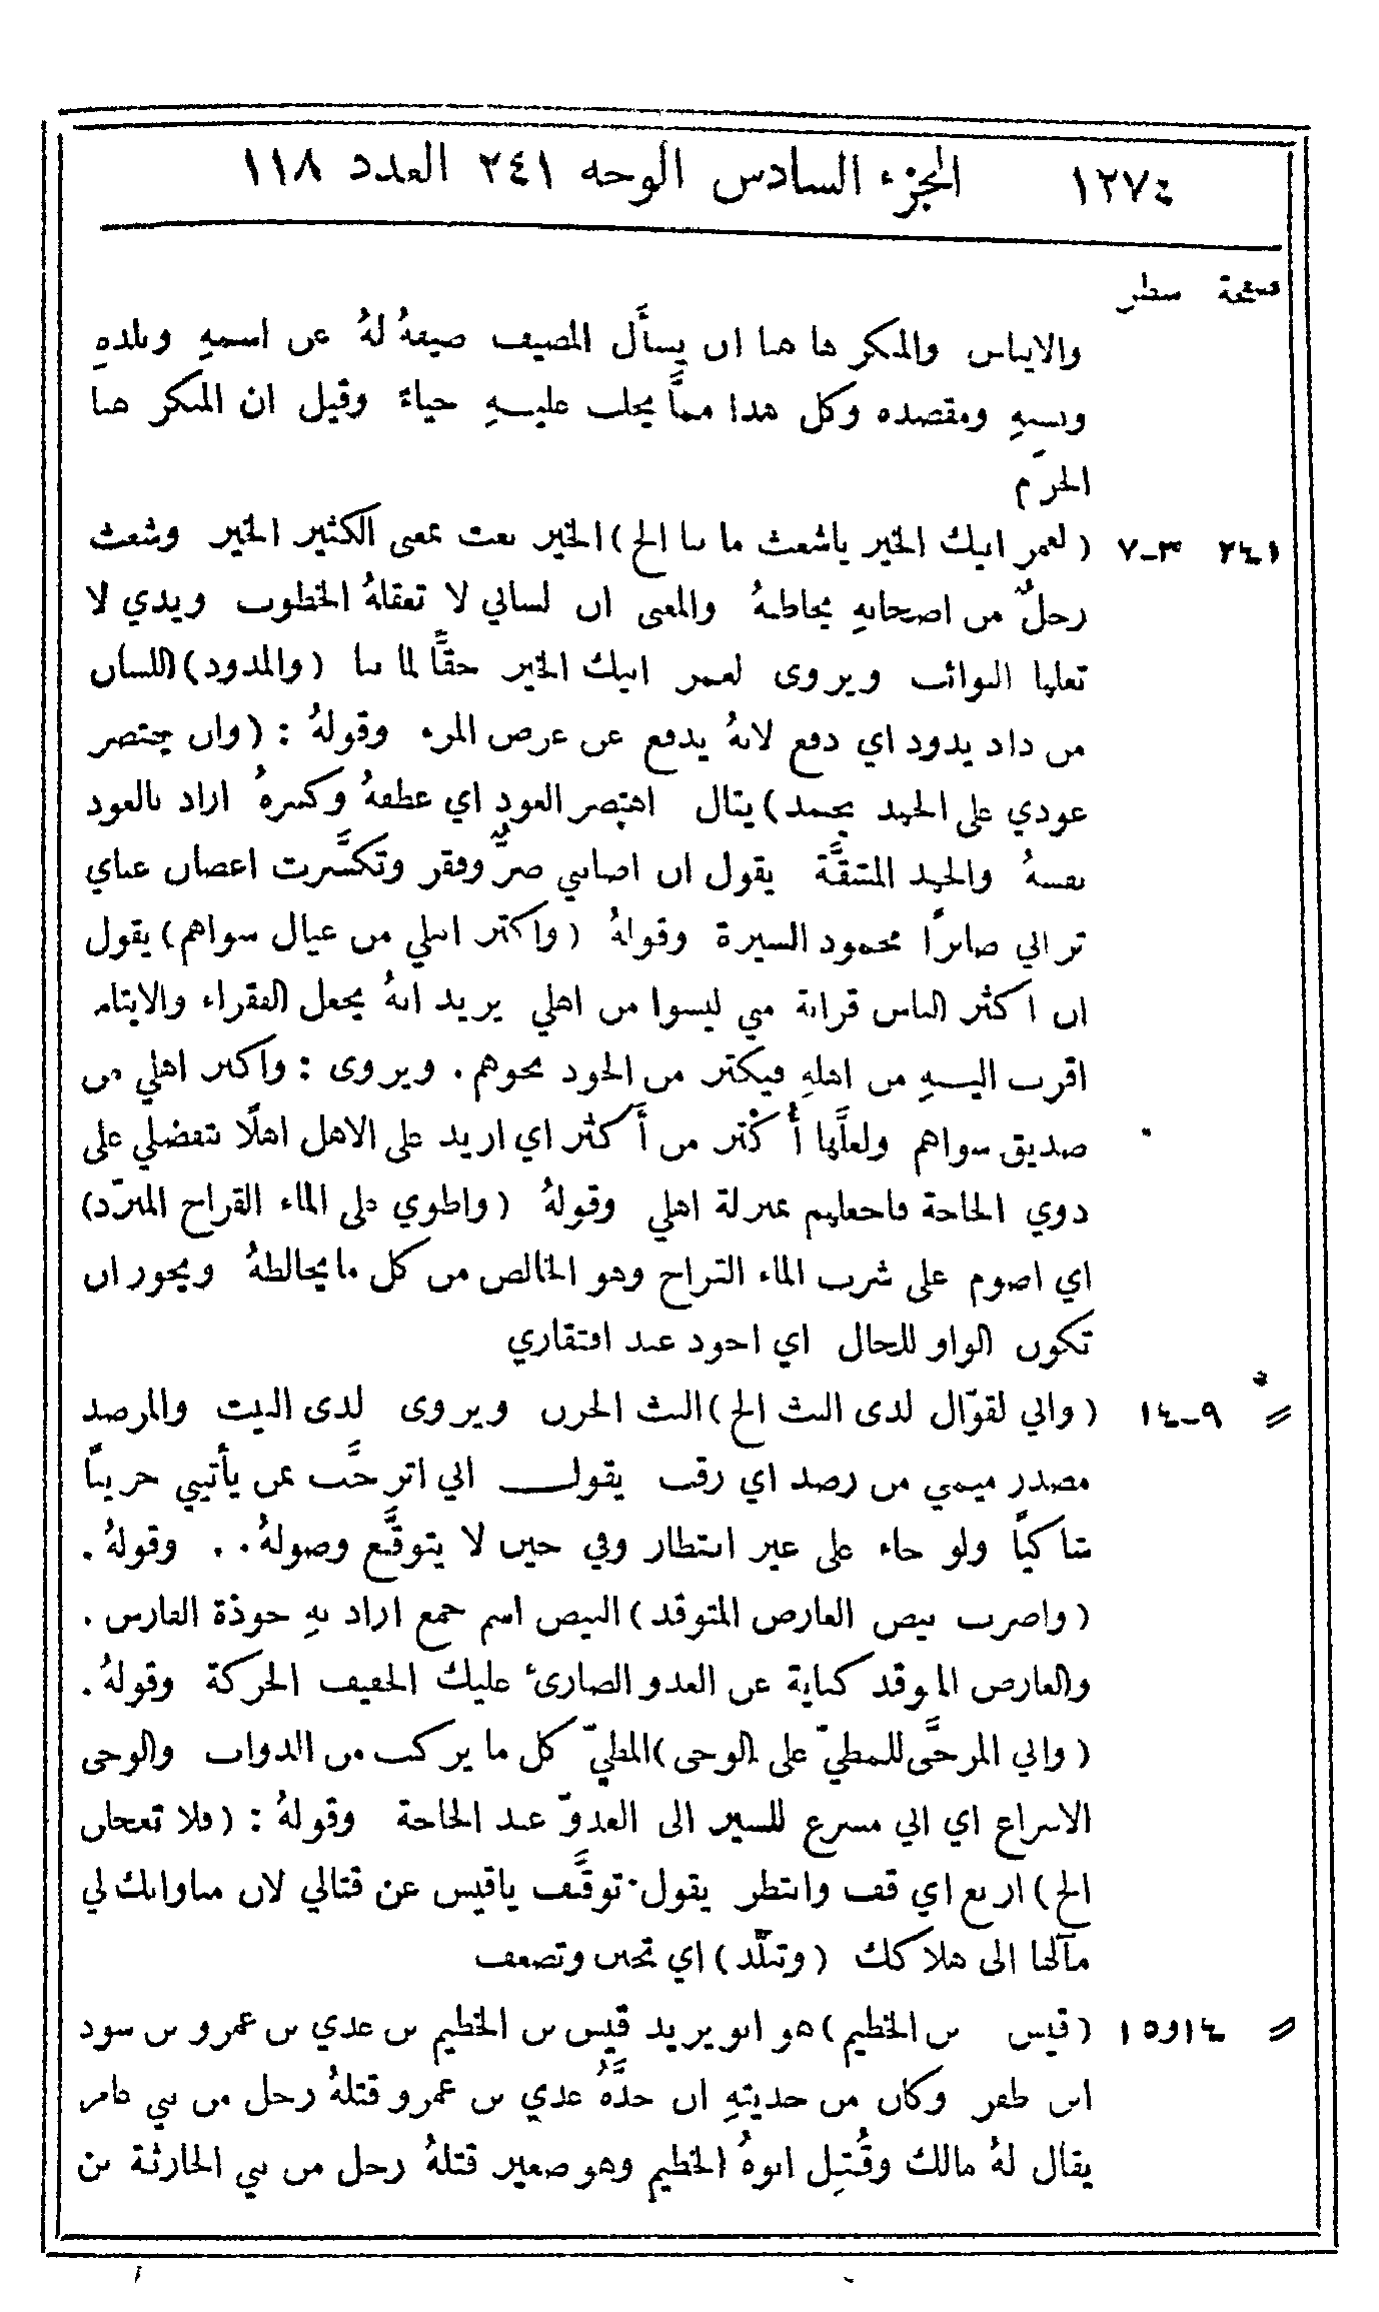 ١٢٧٤ الجزء السادس الوجه ٢٤١ العدد ١١٨
صفحة سطر
والايناس والمنكر ها هنا ان يسأل المضيف ضيفهُ لهُ عن اسمهِ وبلدهِ
ونسبهِ ومقصده وكل هذا ممَّا يجلب عليهِ حياءً وقيل ان المنكر هنا
الحرم
٢٤١ ٣-٧ (لعمر ابيك الخير ياشعث ما نبا الخ) الخير نعت بمعنى الكثير الخير وشعث
رجلٌ من اصحابهِ يخاطبهُ والمعنى ان لساني لا تعقلهُ الخطوب ويدي لا
تغلبها النوائب ويروى لعمر ابيك الخير حقًّا لما نبا (والمذود) اللسان
من ذاد يذود اي دفع لانهُ يدفع عن عرض المرء وقولهُ : (وان يهتصر
عودي على الجهد يحمد) يقال اهتصر العود اي عطفهُ وكسرهُ اراد بالعود
نفسهُ والجهد المشقَّة يقول ان اصابني ضرٌّ وفقر وتكسَّرت اغصان غناي
ترالي صابرًا محمود السيرة وقولهُ (واكثر اهلي من عيال سواهم) يقول
ان اكثر الناس قرابة مني ليسوا من اهلي يريد انهُ يجعل الفقراء والايتام
اقرب اليهِ من اهلهِ فيكثر من الجود نحوهم . ويروى : واكثر اهلي من
صديق سواهم ولعلَّها أُكْثر من أَكثر اي اريد على الاهل اهلًا بتفضلي على
ذوي الحاجة فاجعلهم بمنزلة اهلي وقولهُ (واطوي على الماء القراح المبرّد)
اي اصوم على شرب الماء القراح وهو الخالص من كل ما يخالطهُ ويجوز ان
تكون الواو للحال اي اجود عند افتقاري
〃 ٩-١٤ (واني لقوّال لدى البث الخ) البث الحزن ويروى لدى البيت والمرصد
مصدر ميمي من رصد اي رقب يقول اني اترحَّب بمن يأتيني حزينًا
شاكيًا ولو جاء على غير انتظار وفي حين لا يتوقَّع وصولهُ . . وقولهُ .
(واضرب بيض العارض المتوقد) البيض اسم جمع اراد بهِ خوذة الفارس .
والعارض الموقد كناية عن العدو الضارئ عليك الخفيف الحركة وقولهُ .
(واني المزجَّى للمطيّ على الوجى) المطيّ كل ما يركب من الدواب والوجى
الاسراع اي اني مسرع للسير الى العدوّ عند الحاجة وقولهُ : (فلا تعجلن
الخ) اربع اي قف وانتظر يقول توقَّف ياقيس عن قتالي لان مناوأتك لي
مآلها الى هلاكك (وتبلّد) اي تجبن وتضعف
〃 ١٤و١٥ (قيس بن الخطيم) هو ابو يزيد قيس بن الخطيم بن عدي بن عمرو بن سود
ابن ظفر وكان من حديثهِ ان جدَّهُ عدي بن عمرو قتلهُ رجل من بني عامر
يقال لهُ مالك وقُتِل ابوهُ الخطيم وهو صغير قتلهُ رجل من بني الحارثة بن